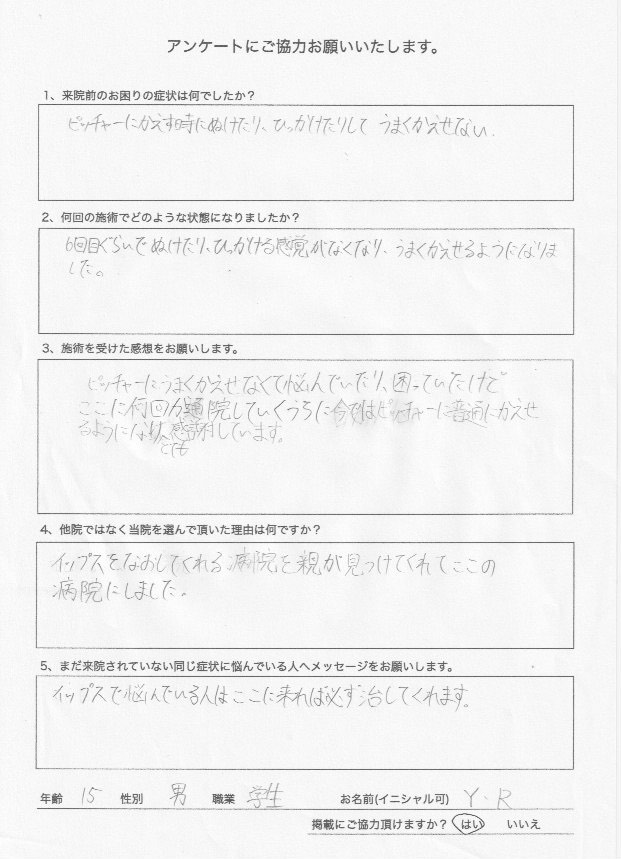 アンケートにご協力お願いいたします。
1、来院前のお困りの症状は何でしたか？
ピッチャーにかえす時にぬけたり、ひっかけたりして うまくかえせない.
2、何回の施術でどのような状態になりましたか？
6回目ぐらいでぬけたり、ひっかける感覚がなくなり、うまくかえせるようになりま
した。
3、施術を受けた感想をお願いします。
ピッチャーにうまくかえせなくて悩んでいたり、困っていたけど
ここに何回か通院していくうちに今ではピッチャーに普通にかえせ
るようになり、感謝しています。
とても
4、他院ではなく当院を選んで頂いた理由は何ですか？
イップスをなおしてくれる病院を親が見つけてくれてここの
病院にしました。
5、まだ来院されていない同じ症状に悩んでいる人へメッセージをお願いします。
イップスで悩んでいる人はここに来れば必ず治してくれます。
年齢 15 性別 男 職業 学生 お名前(イニシャル可) Y・R
掲載にご協力頂けますか？ はい いいえ